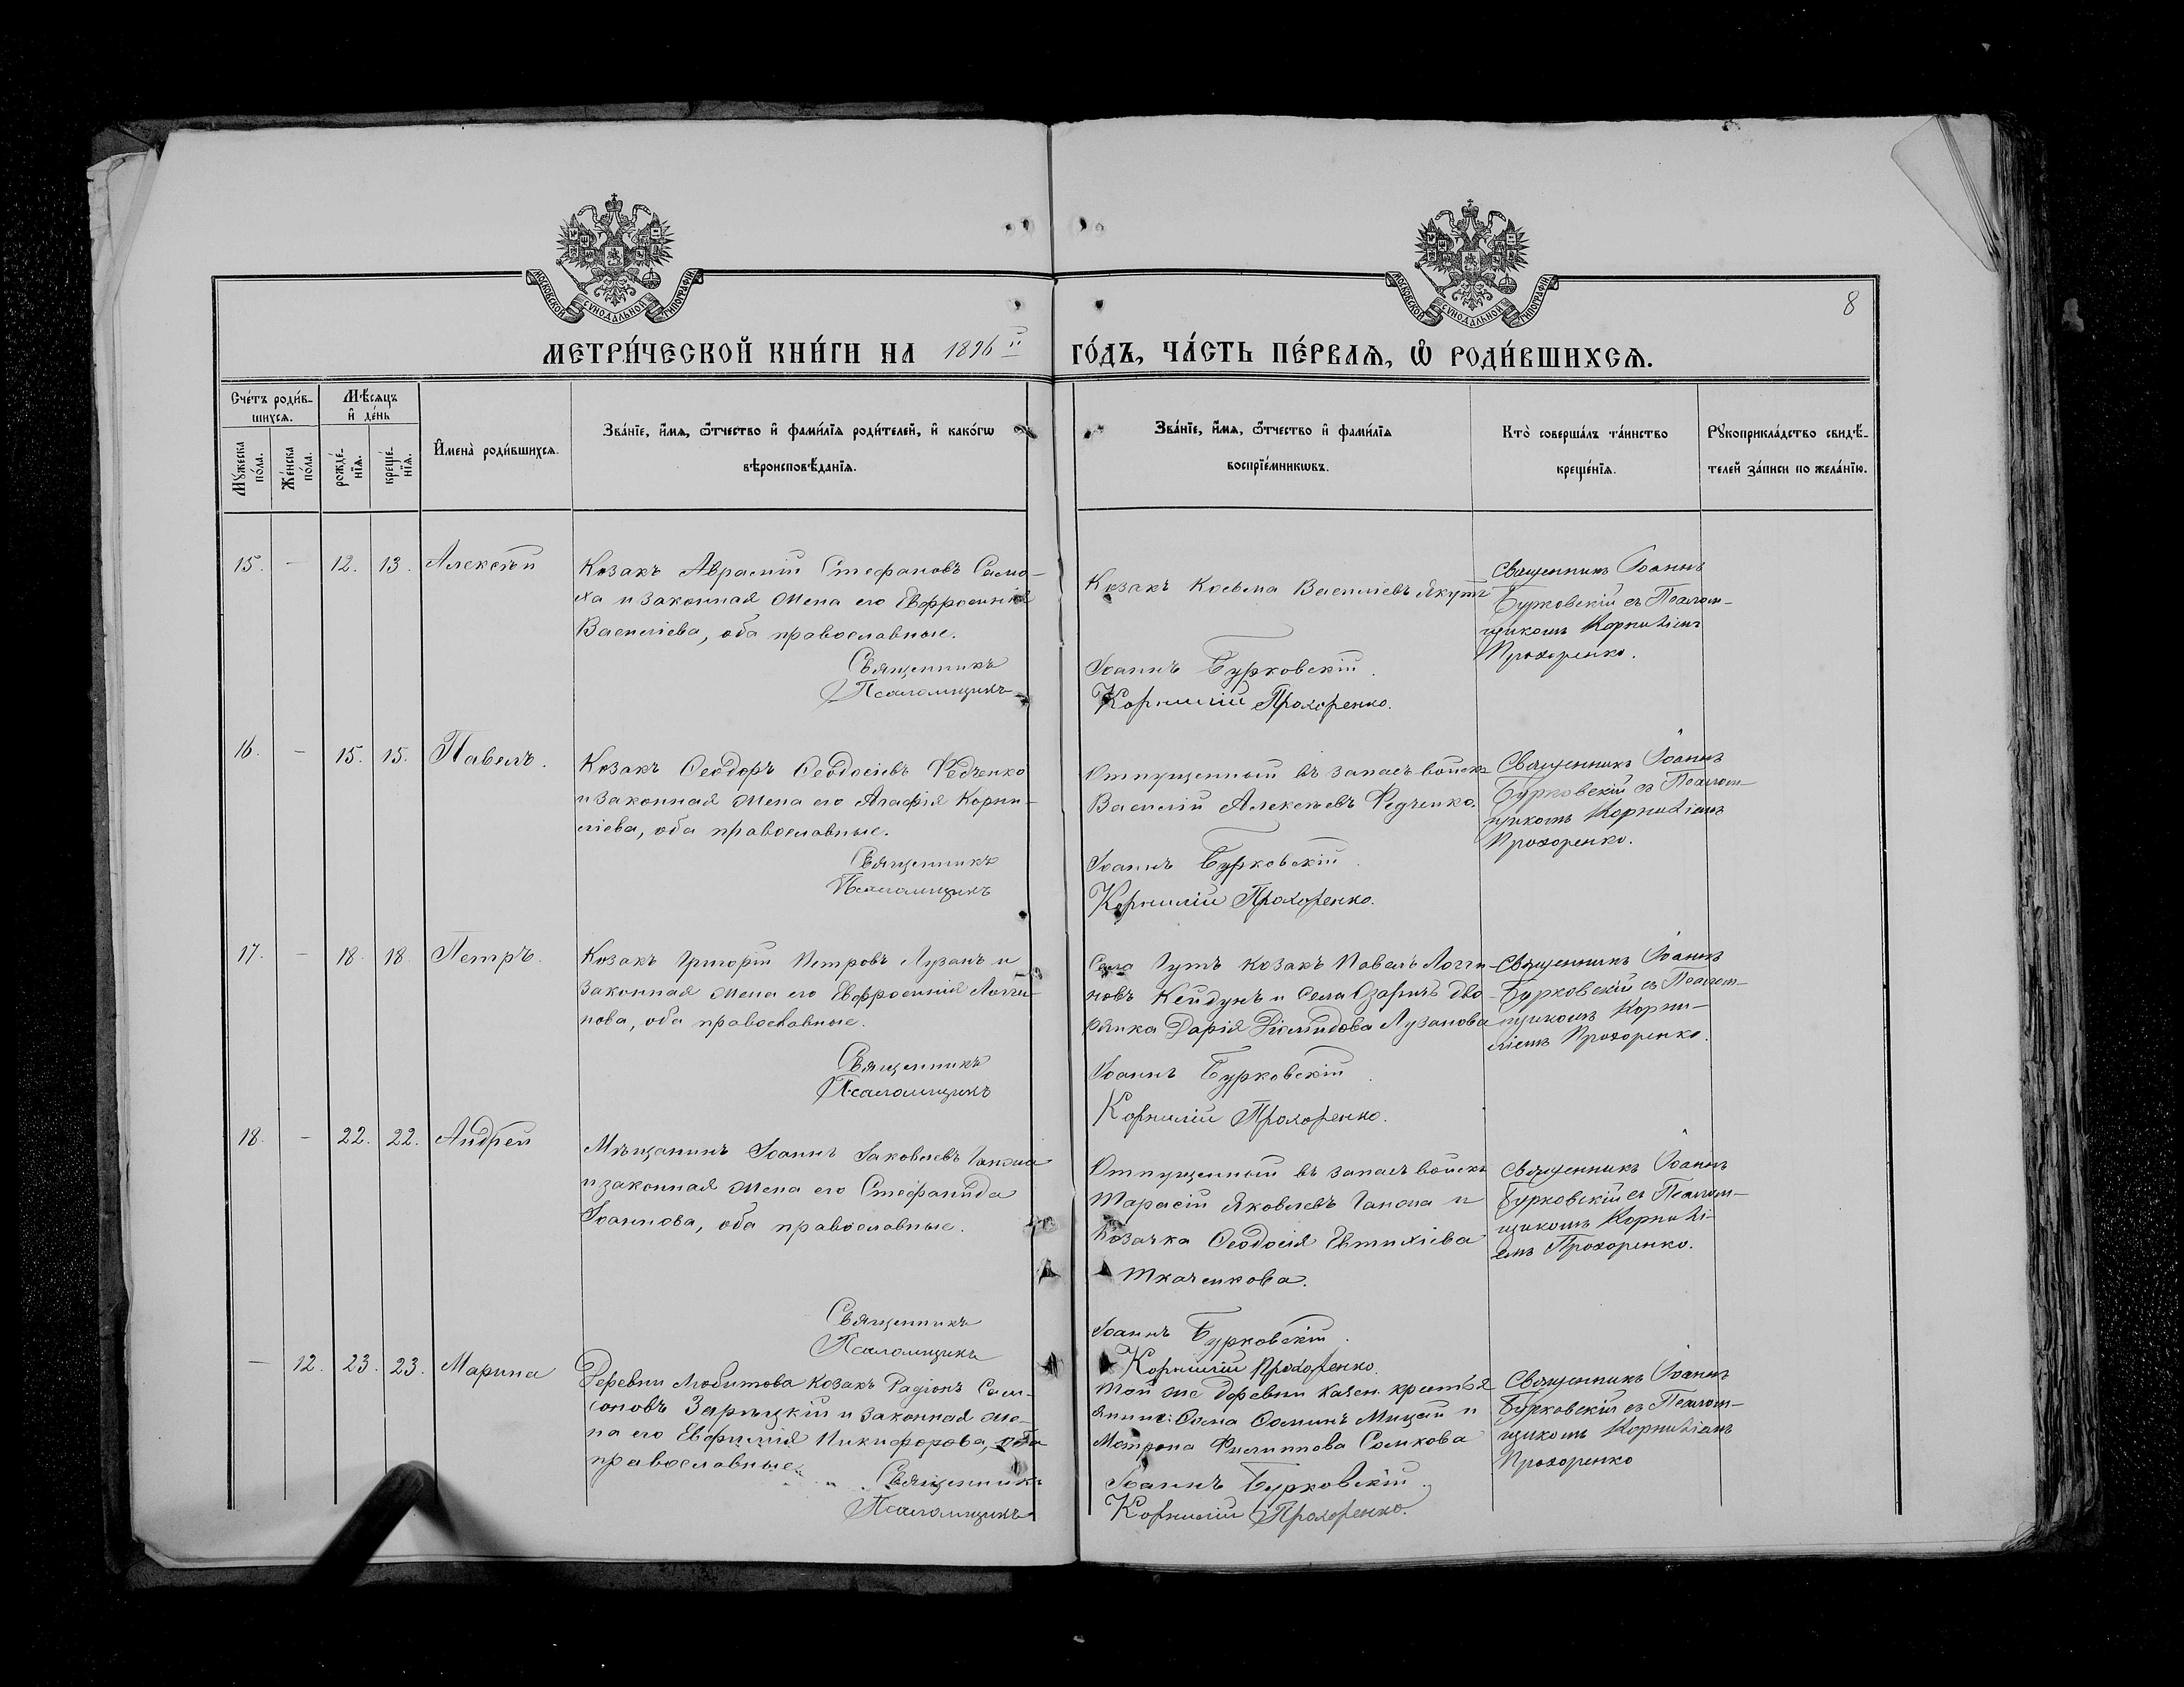 МОСКОВСКОЙ СѴНОДАЛЬНОЙ ТИПОГРАФІИ
МОСКОВСКОЙ СѴНОДАЛЬНОЙ ТИПОГРАФІИ
8
МЕТРИ́ЧЕСКОЙ КНИ́ГИ НА 1896 й ГО́ДЪ, ЧА́СТЬ ПЕ́РВАѦ, Ѡ҆ РОДИ́ВШИХСѦ.
Сче́тъ роди́в-
шихсѧ.
Мѣ́сѧцъ
и҆ де́нь
Мꙋ́жеска
по́ла.
Же́нска
по́ла.
рожде́-
нїѧ.
креще́-
нїѧ.
И҆мена̀ роди́вшихсѧ.
Зва́нїе, и҆́мѧ, ѻ҆́тчество и҆ фами́лїѧ роди́телей, и҆ како́гѡ
вѣроисповѣ́данїѧ.
Зва́нїе, и҆́мѧ, ѻ҆́тчество и҆ фами́лїѧ
воспрїе́мникѡвъ.
Кто̀ соверша́лъ та́инство
креще́нїѧ.
Рꙋкоприкла́дство свидѣ́-
телей за́писи по жела́нїю.
15. - 12. 13. Алексѣй
Козакъ Аврамій Стефановъ Само-
ха и законная жена его Евфросинія
Василіева, оба православные.
Священникъ
Псаломщикъ
Козакъ Косьма Василіевъ Якутъ
Іоаннъ Бурковскій.
Корнилій Прохоренко.
Священникъ Іоаннъ
Бурковскій съ Псалом-
щикомъ Корниліемъ
Прохоренко.
16. - 15. 15. Павелъ.
Козакъ Ѳеодоръ Ѳеодосіевъ Федченко
и законная жена его Агафія Корни-
ліева, оба православные.
Священникъ
Псаломщикъ
Отпущенный въ запасъ войскъ
Василій Алексѣевъ Федченко.
Іоаннъ Бурковскій.
Корнилій Прохоренко.
Священникъ Іоаннъ
Бурковскій съ Псалом-
щикомъ Корниліемъ
Прохоренко.
17. - 18. 18. Петръ.
Козакъ Григорій Петровъ Лузанъ и
законная жена его Евфросинія Логги-
нова, оба православные.
Священникъ
Псаломщикъ
Села Гутъ козакъ Павелъ Логги-
новъ Кейдунъ и села Озаричъ дво-
рянка Дарія Діомидова Лузанова
Іоаннъ Бурковскій.
Корнилій Прохоренко.
Священникъ Іоаннъ
Бурковскій съ Псалом-
щикомъ Корни-
ліемъ Прохоренко.
18. - 22. 22. Андрей
Мѣщанинъ Іоаннъ Іаковлевъ Гапона
и законная жена его Стефанида
Іоаннова, оба православные.
Священникъ
Псаломщикъ
Отпущенный въ запасъ войскъ
Тарасій Яковлевъ Гапона и
козачка Ѳеодосія Евтихіева
Ткаченкова.
Іоаннъ Бурковскій.
Корнилій Прохоренко.
Священникъ Іоаннъ
Бурковскій съ Псалом-
щикомъ Корнилі-
емъ Прохоренко.
- 12. 23. 23. Марина
Деревни Любитова козакъ Радіонъ Сам-
соновъ Зарѣцкій и законная же-
на его Евфимія Никифорова, оба
православные.
Священникъ
Псаломщикъ
Той же деревни казен. крестья-
нинъ Ѳома Ѳоминъ Мицай и
Матрона Филиппова Сомкова
Іоаннъ Бурковскій.
Корнилій Прохоренко.
Священникъ Іоаннъ
Бурковскій съ Псалом-
щикомъ Корниліемъ
Прохоренко